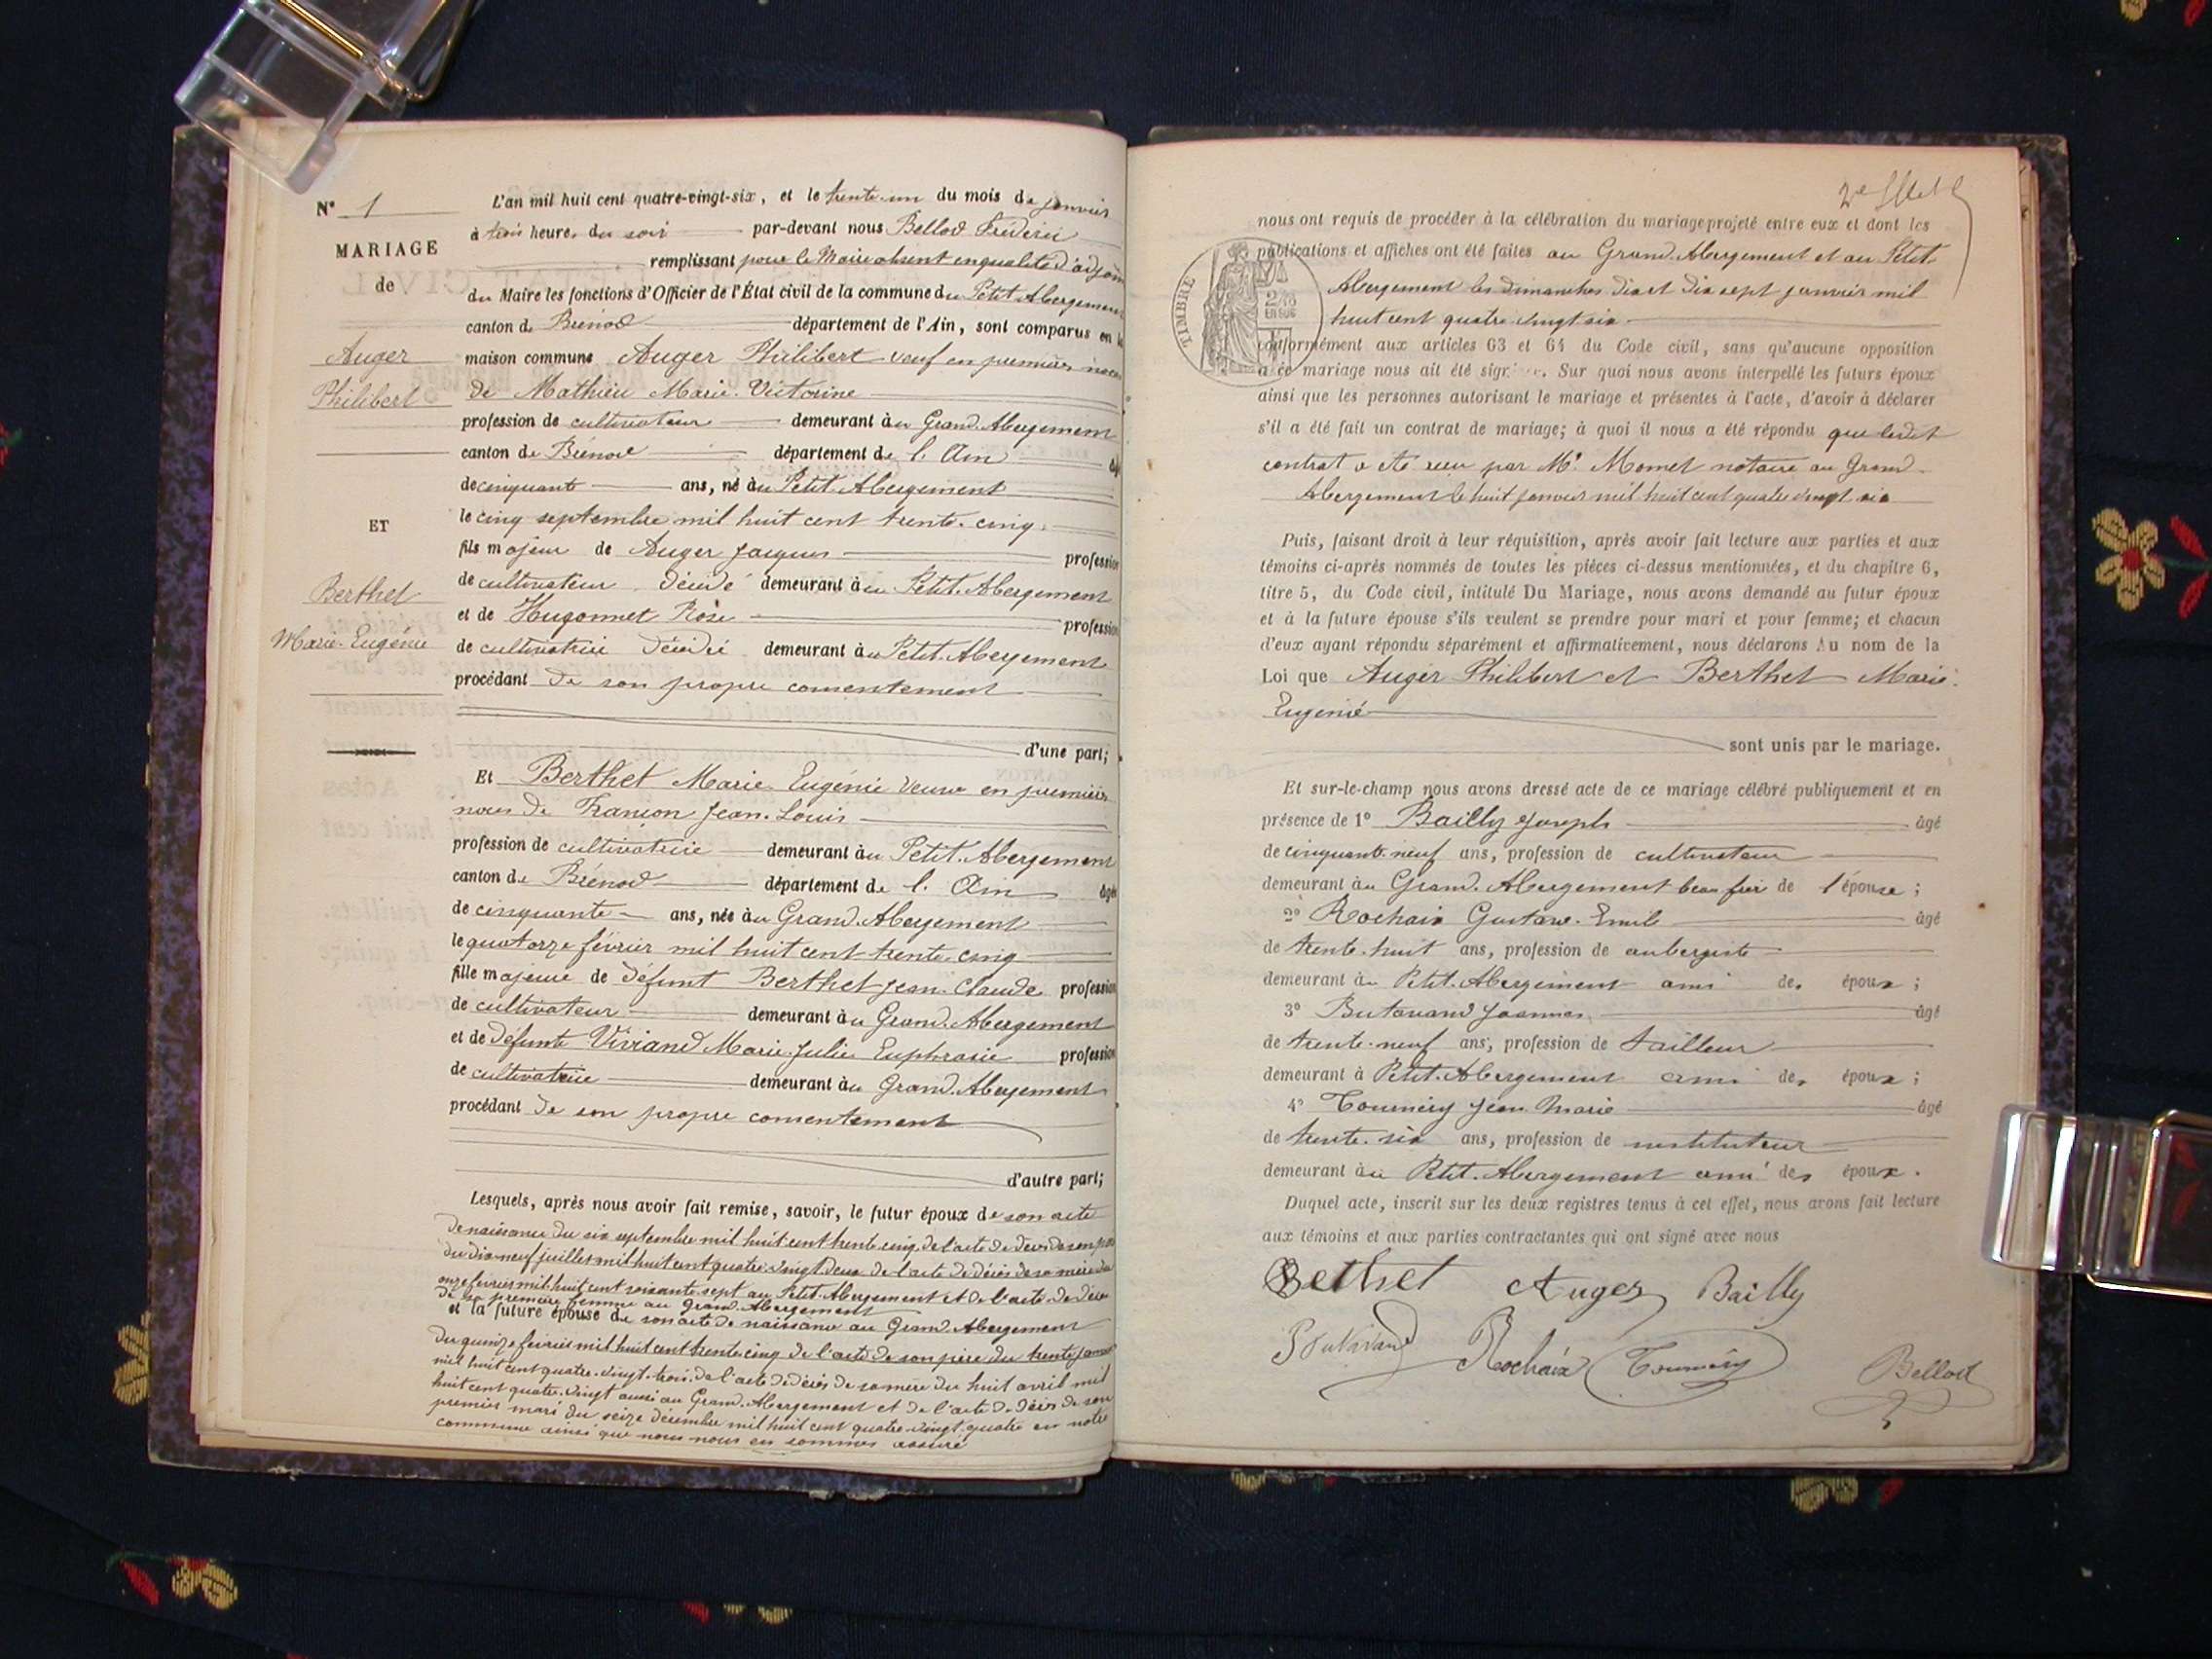 N° 1
MARIAGE
de
Auger
Philibert
ET
Berthet
Marie-Eugénie
L'an mil huit cent quatre-vingt-six, et le trente-un du mois de janvier
à trois heures du soir par-devant nous Bellod Fréderic
remplissant pour le Maire absent en qualité d'adjoint
du Maire les fonctions d'Officier de l'État civil de la commune du Petit-Abergement
canton de Brénod département de l'Ain, sont comparus en la
maison commune Auger Philibert veuf en premières noces
de Mathieu Marie-Victorine
profession de cultivateur demeurant au Grand-Abergement
canton de Brénod département de l'Ain âgé
de cinquante ans, né au Petit-Abergement
le cinq septembre mil huit cent trente-cinq
fils majeur de Auger Jacques profession
de cultivateur décédé demeurant au Petit-Abergement
et de Hugonnet Rose profession
de cultivatrice décédée demeurant au Petit-Abergement
procédant de son propre consentement
d'une part;
Et Berthet Marie Eugénie veuve en premières
noces de Jean-Louis
profession de cultivatrice demeurant au Petit-Abergement
canton de Brénod département de l'Ain âgée
de cinquante ans, née au Grand-Abergement
le quatorze février mil huit cent trente-cinq
fille majeure de défunt Berthet Jean-Claude profession
de cultivateur demeurant au Grand-Abergement
et de défunte Viviand Marie-Julie Euphrasie profession
de cultivatrice demeurant au Grand-Abergement
procédant de son propre consentement
d'autre part;
Lesquels, après nous avoir fait remise, savoir, le futur époux de son acte
de naissance du six septembre mil huit cent trente-cinq, de l'acte de décès de son père
du dix-neuf juillet mil huit cent quatre-vingt-deux de l'acte de décès de sa mère du
onze février mil huit cent soixante-sept au Petit-Abergement et de l'acte de décès
de sa première femme au Grand-Abergement
et la future épouse de son acte de naissance au Grand-Abergement
du quinze février mil huit cent trente-cinq de l'acte de son père du trente janvier
mil huit cent quatre-vingt-trois, de l'acte de décès de sa mère du huit avril mil
huit cent quatre-vingt aussi au Grand-Abergement et de l'acte de décès de son
premier mari du seize décembre mil huit cent quatre-vingt-quatre en notre
commune ainsi que nous nous en sommes assuré
nous ont requis de procéder à la célébration du mariage projeté entre eux et dont les
publications et affiches ont été faites au Grand-Abergement et au Petit-
Abergement les dimanches dix et dix sept janvier mil
huit cent quatre-vingt six
TIMBRE
2/10
EN SUS
conformément aux articles 63 et 64 du Code civil, sans qu'aucune opposition
à ce mariage nous ait été signifiée. Sur quoi nous avons interpellé les futurs époux
ainsi que les personnes autorisant le mariage et présentes à l'acte, d'avoir à déclarer
s'il a été fait un contrat de mariage; à quoi il nous a été répondu que ledit
contrat a été reçu par Me Momet notaire au Grand-
Abergement le huit janvier mil huit cent quatre vingt six
Puis, faisant droit à leur réquisition, après avoir fait lecture aux parties et aux
témoins ci-après nommés de toutes les pièces ci-dessus mentionnées, et du chapitre 6,
titre 5, du Code civil, intitulé Du Mariage, nous avons demandé au futur époux
et à la future épouse s'ils veulent se prendre pour mari et pour femme; et chacun
d'eux ayant répondu séparément et affirmativement, nous déclarons Au nom de la
Loi que Auger Philibert et Berthet Marie-
Eugénie
sont unis par le mariage.
Et sur-le-champ nous avons dressé acte de ce mariage célébré publiquement et en
présence de 1° Bailly Joseph âgé
de cinquante-neuf ans, profession de cultivateur
demeurant au Grand-Abergement beau frère de l'épouse;
2° Rochaix Gustave-Emile âgé
de trente-huit ans, profession de aubergiste
demeurant au Petit-Abergement ami des époux;
3° Butavand Joannes âgé
de trente-neuf ans, profession de tailleur
demeurant à Petit-Abergement ami des époux;
4° Tournéry Jean Marie âgé
de trente-six ans, profession de instituteur
demeurant au Petit-Abergement ami des époux.
Duquel acte, inscrit sur les deux registres tenus à cet effet, nous avons fait lecture
aux témoins et aux parties contractantes qui ont signé avec nous
Bethet Auger Bailly
Butavand Rochaix Tournéry Bellod